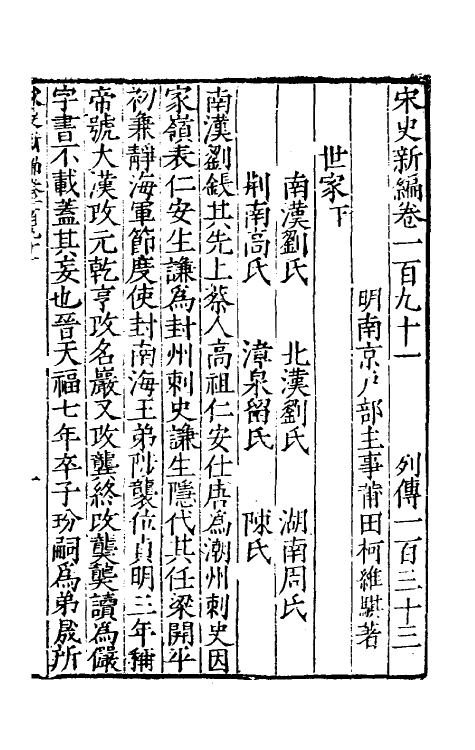 宋史新編卷一百九十一 列傳一百三十三
明南京戶部主事莆田柯維騏著
世家下
南漢劉氏 北漢劉氏 湖南周氏
荆南高氏 漳泉留氏 陳氏
南漢劉鋹其先上蔡人高祖仁安仕唐爲潮州刺史因
家嶺表仁安生謙爲封州刺史謙生隱代其任梁開平
初兼靜海軍節度使封南海王弟陟襲位貞明三年稱
帝號大漢改元乾亨改名巖又改龔終改龑龑讀爲儼
字書不載蓋其妄也晉天福七年卒子玢嗣爲弟晟所
一